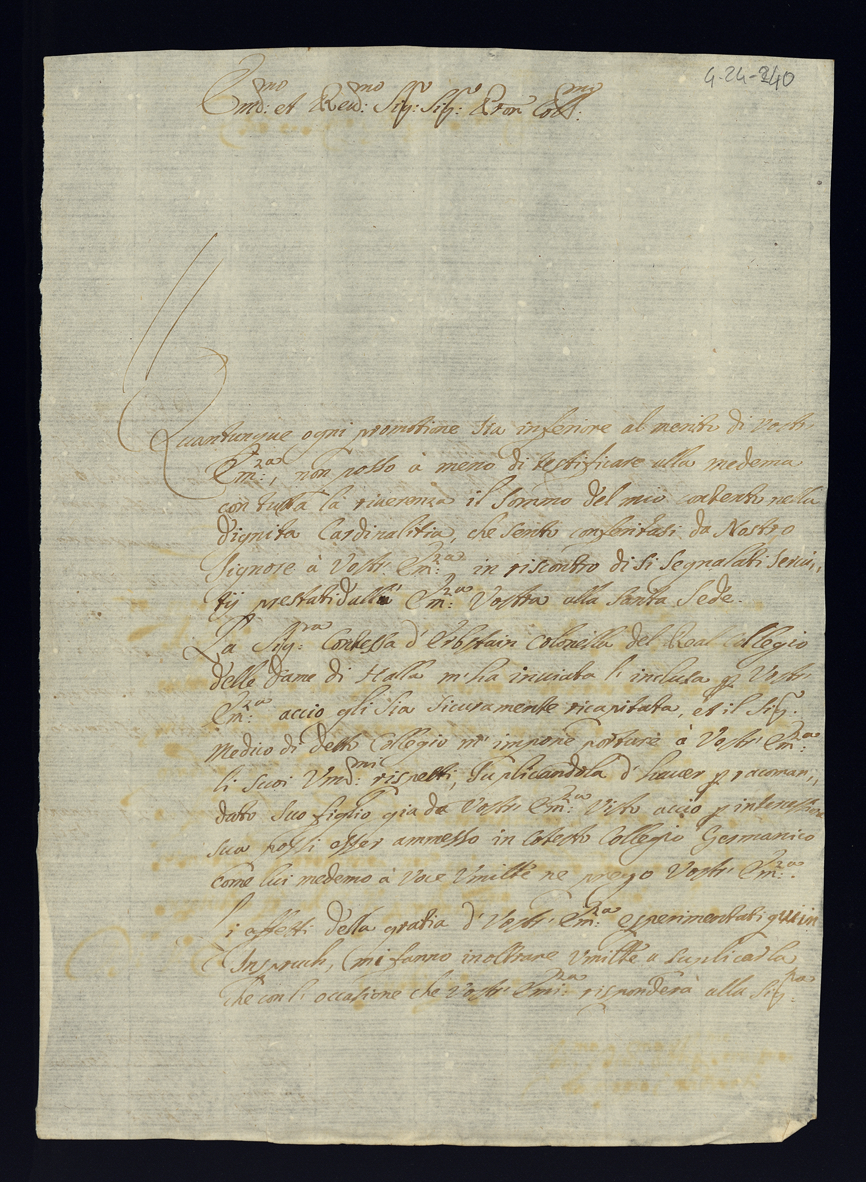 4-24-240
Em̅:mo et Reu:mo Sig:r Sig:r Pron Coll:mo
Quantunque ogni promotione sia inferiore al merito di Vostr'
Em:za, non posso à meno di testificare alla medema
con tutta la riuerenza il sommo del mio contento nella
dignita Cardinalitia, che sento conferitasi da Nostro
Signore à Vostr' Em:za in riscontro di si segnalati serui,,
tij prestati dalla Em:za Vostra alla Santa Sede.
La Sig:ra Contessa d' Colonella del Real Collegio
delle Dame di Halla m'ha inuiata l'inclusa p Vostr'
Em:za accio gli sia sicuramente ricapitata, et il Sig:r
Medico di detto Collegio m'impone portare à Vostr' Em:za
li suoi Vm:mi rispetti, suplicandola d'hauer p racoman,,
dato suo figlio gia da Vostr' Em:za visto accio p
sua possi esser ammesso in cotesto Collegio Germanico
come lui medemo à voce Vmilte ne prego Vostr' Em:za.
Li affetti della gratia d'Vostr' Em:za esperimentati qui in
Inspruch, mi fanno inoltrare Vmilte a suplicarla
che con l'occasione che Vostr' Emi:za risponderà alla Sig:ra